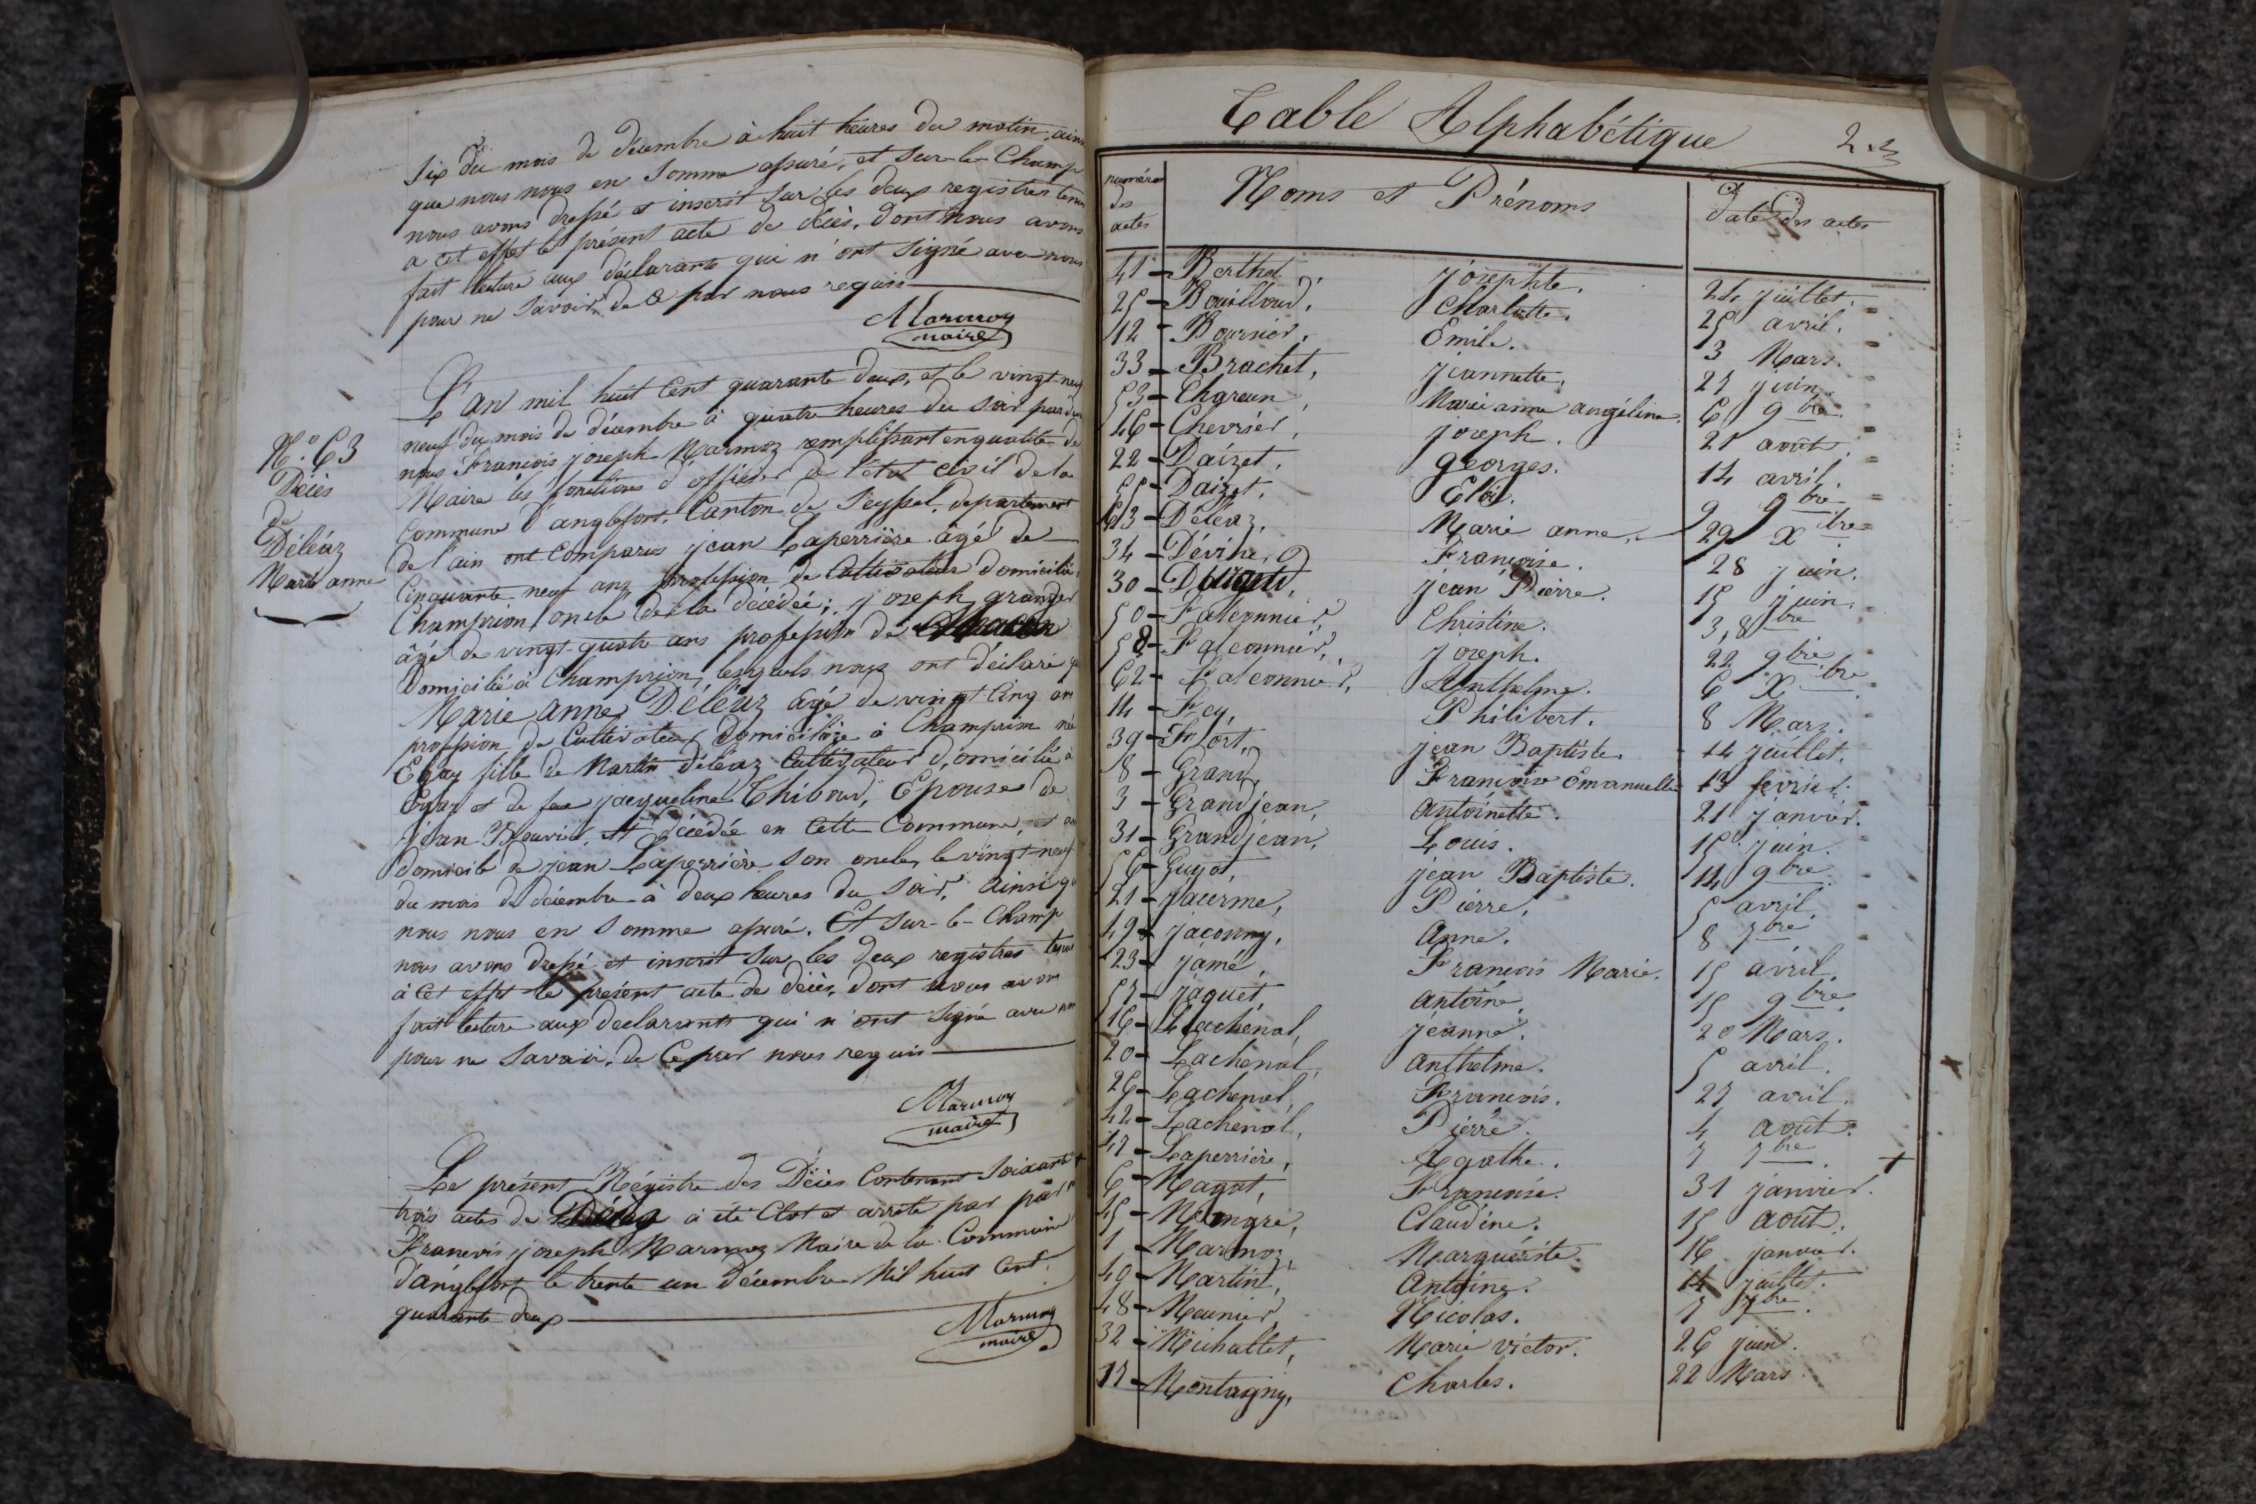 Six du mois de décembre à huit heures du matin, ainsi
que nous nous en Somme assuré, et Sur-le-Champ
nous avons dressé et inscrit Sur les deux registres tenus
a cet effet le présent acte de décès, dont nous avons
fait lecture aux déclarants qui n'ont Signé avec nous
pour ne Savoir, de par nous requis
Marmoz
maire
N.o 63
Décès
de
Déléaz
Marie anne
L'an mil huit Cent quarante deux, et le vingt-neuf
neuf du mois de décembre à quatre heures du Soir par
nous François joseph Marmoz remplissant en qualité de
Maire les fonctions d'officier de l'état civil de la
Commune d'anglefort, Canton de Seyssel, département
de l'ain ont Comparus jean Laperrière âgé de
Cinquante neuf ans profession de Cultivateur domicilié
Champrion, oncle de la décédée; joseph granger
âgé de vingt-quatre ans profession de
Domicilié à Champrion, lesquels nous ont déclaré que
Marie anne Déléaz âgé de vingt Cinq ans
profession de Cultivateur Domiciliée à Champrion née
fille de Martin déléaz Cultivateur domicilié à
et de feue jacqueline Thiboud, Epouse de
jean Bouvier, décédée en Cette Commune, et au
domicile de jean Laperrière Son oncle, le vingt-neuf
du mois de décembre à deux heures du Soir, ainsi que
nous nous en Somme assuré. Et Sur-le-Champ
nous avons dressé et inscrit Sur les deux registres tenus
à Cet effet le présent acte de décès, dont nous avons
fait lecture aux déclarants qui n'ont Signé avec nous
pour ne Savoir, de Ce par nous requis
Marmoz
maire
Le présent Régistre des Décès Contenant Soixante
trois actes de Décès à été Clos et arrêté par
François joseph Marmoz Maire de la Commune
d'anglefort, le trente un décembre Mil huit Cent
quarante deux
Marmoz
maire
Table Alphabétique
numéro des actes Noms et Prénoms Date des actes
41 Berthet, josephte. 24 juillet.
25 Bouilloud, Charlotte. 25 avril.
12 Bournier, Emile. 3 Mars.
33 Brachet, jeannette. 27 juin.
53 Chgreun, Marie anne angéline. 6 9bre
46 Chevrier, joseph. 21 août.
22 Daizet, georges. 14 avril.
55 Daizet, Eloi. 9 9bre
63 Déléaz, Marie anne, 29 Xbre
34 Dévine, Françoise. 28 juin.
30 Durand, jean Pierre. 15 juin.
50 Falconnier, Christine. 3, 8bre
58 Falconnier, joseph. 22 9bre
62 Falconnier, Anthelme. 6 Xbre
14 Fey, Philibert. 8 Mars.
39 Fort, jean Baptiste. 14 juillet.
8 Grand, François émanuelle 13 février.
3 Grandjean, Antoinette. 21 janvier.
31 Grandjean, Louis. 15 juin.
56 Guyot, jean Baptiste. 14 9bre
21 jacerme, Pierre. 5 avril.
49 jaconny, Anne. 8 7bre
23 jamé, François Marie. 15 avril.
57 jaquet, Antoine. 15 9bre
16 Lachenal, jeanne. 20 Mars.
20 Lachenal, anthelme. 5 avril.
26 Lachenal, François. 27 avril.
42 Lachenal, Pierre. 4 août.
47 Laperrière, Agathe. 7 7bre
6 Magat, Francoise. 31 janvier.
45 Mongré, Claudine. 15 août.
1 Marmoz, Marguerite. 16 janvier.
40 Martin, Antoine. 14 juillet.
48 Meunier, Nicolas. 7 7bre.
32 Michallet, Marie victor. 26 juin.
17 Montagny, Charles. 22 Mars